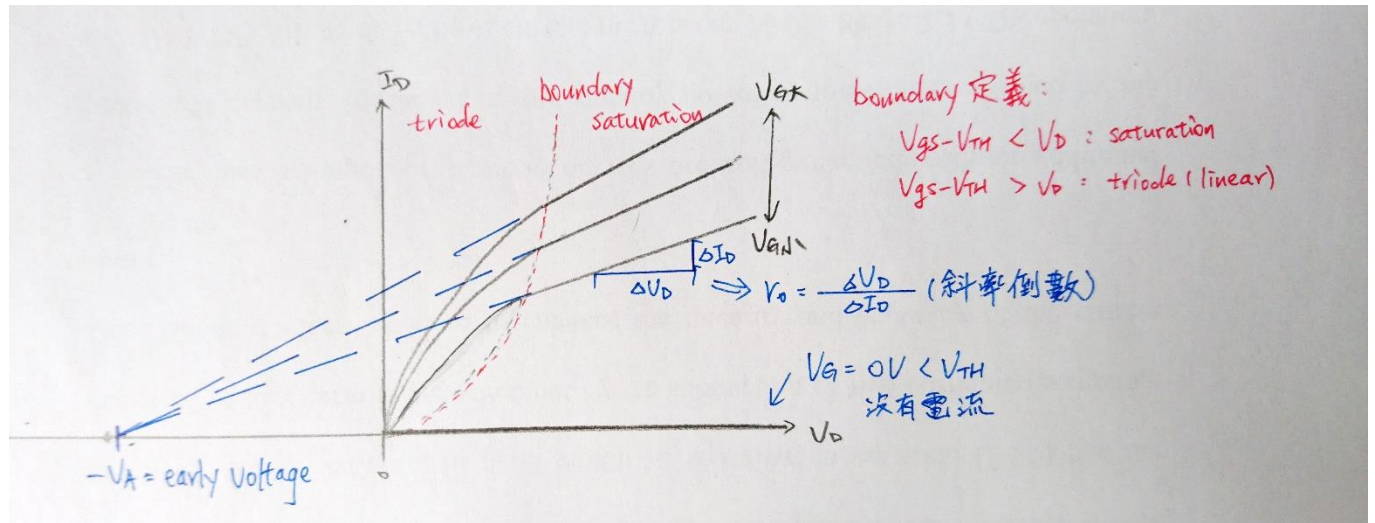 I_D
triode
boundary
saturation
V_G大
V_G小
boundary 定義:
Vgs-V_TH < V_D : saturation
Vgs-V_TH > V_D : triode (linear)
ΔI_D
ΔV_D
⇒ r_o = ΔV_D / ΔI_D (斜率倒數)
V_G = 0V < V_TH
沒有電流
V_D
0
-V_A = early voltage